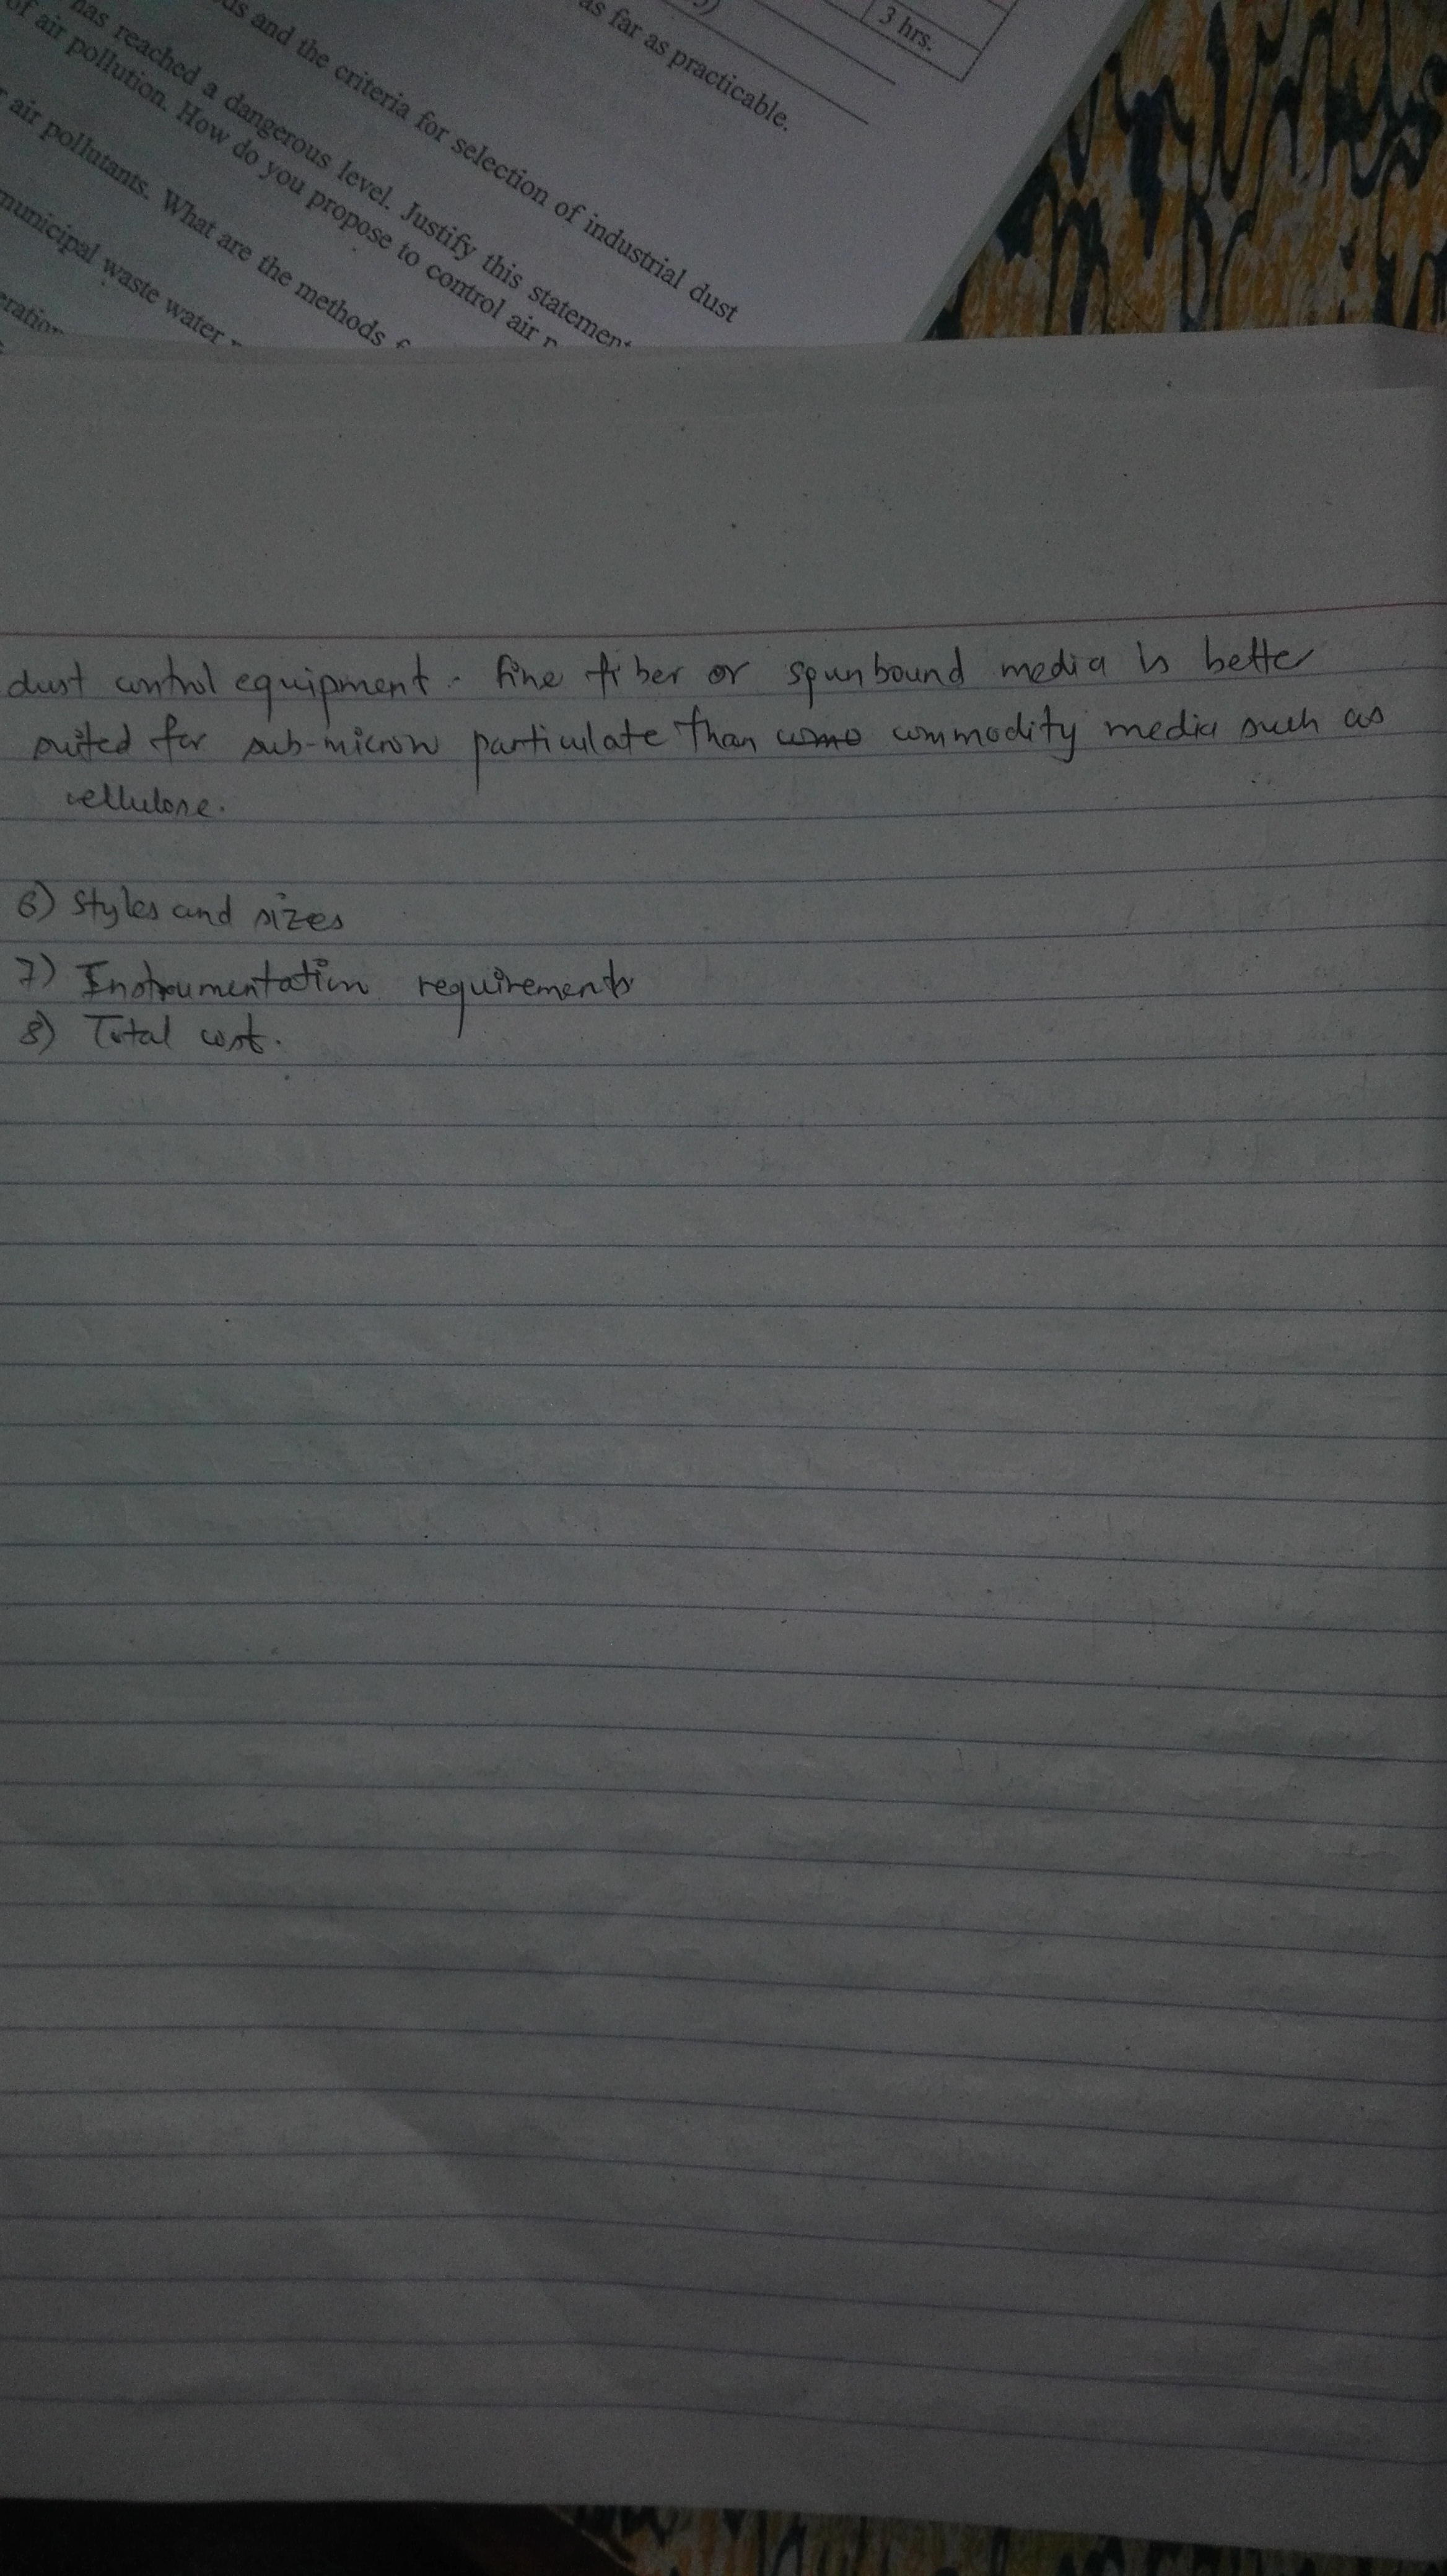 3 hrs.
as far as practicable.
and the criteria for selection of industrial dust
has reached a dangerous level. Justify this statement
of air pollution. How do you propose to control air
air pollutants. What are the methods
municipal waste water
dust control equipment. fine fiber or spunbound media is better
suited for sub-micron particulate than commodity media such as
cellulose.
6) Styles and sizes
7) Instrumentation requirements
8) Total cost.